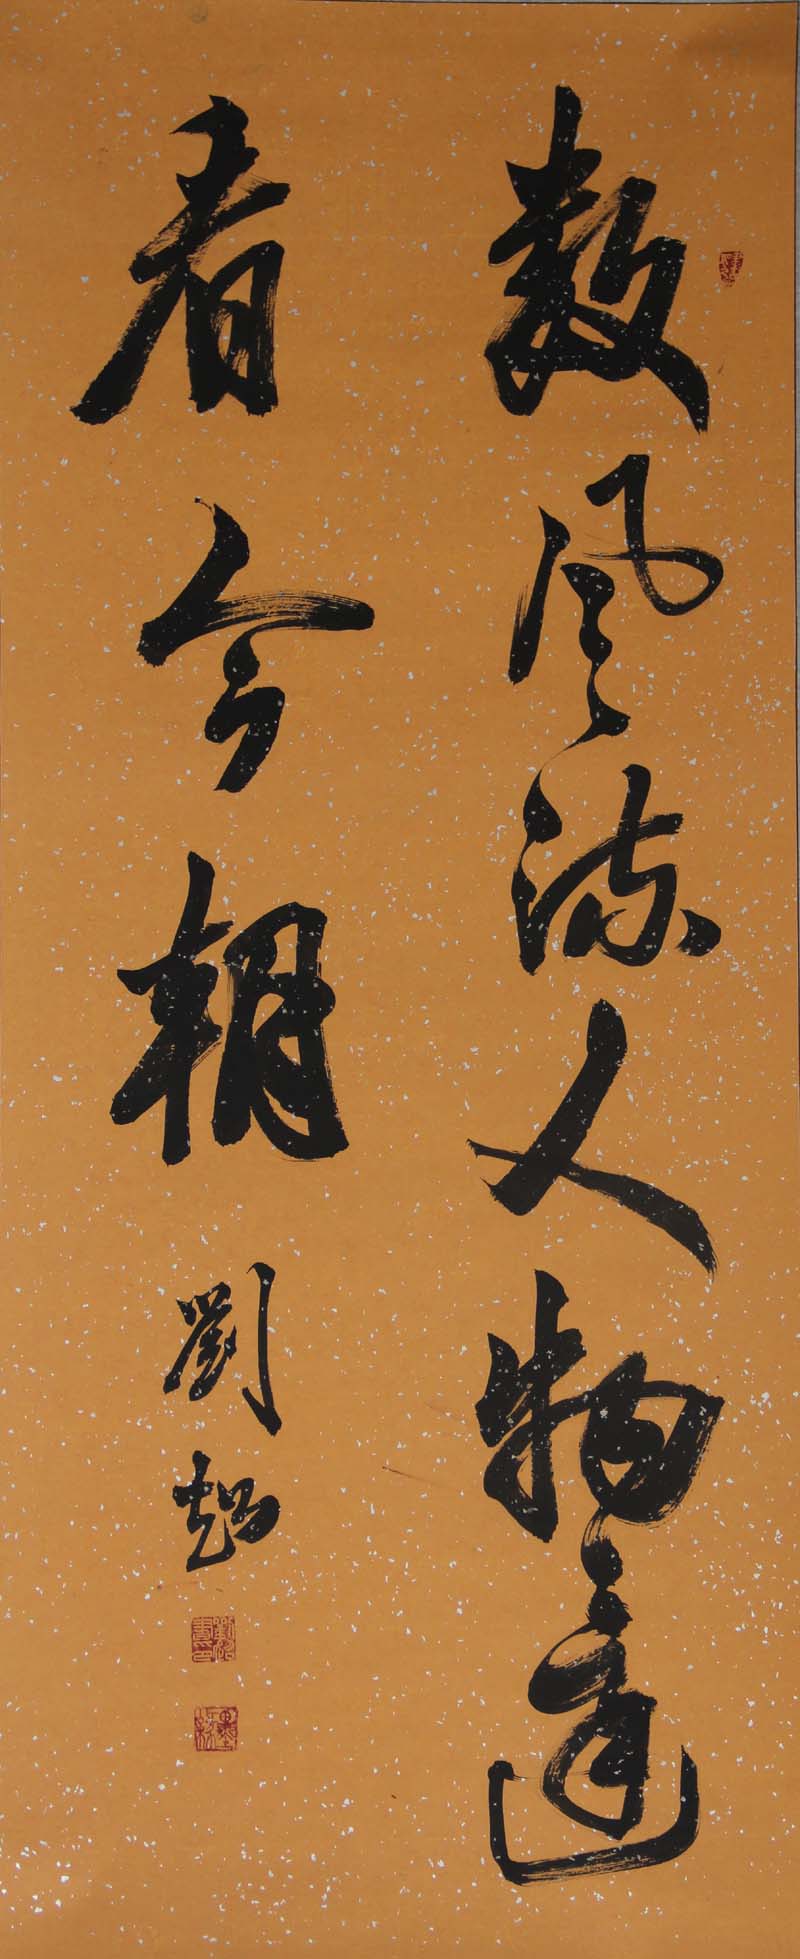 数风流人物還
看今朝
劉超